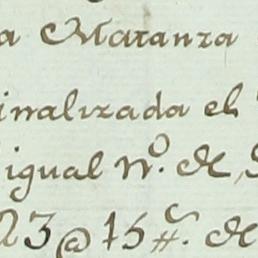 a Matanza
inalizada el
igual N.º de
23 @ 15 #. de